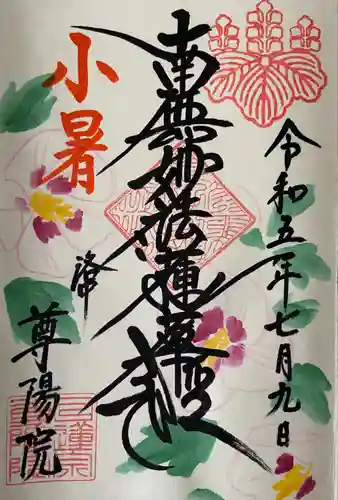 令和五年七月九日
南無妙法蓮華経
小暑
降
尊陽院